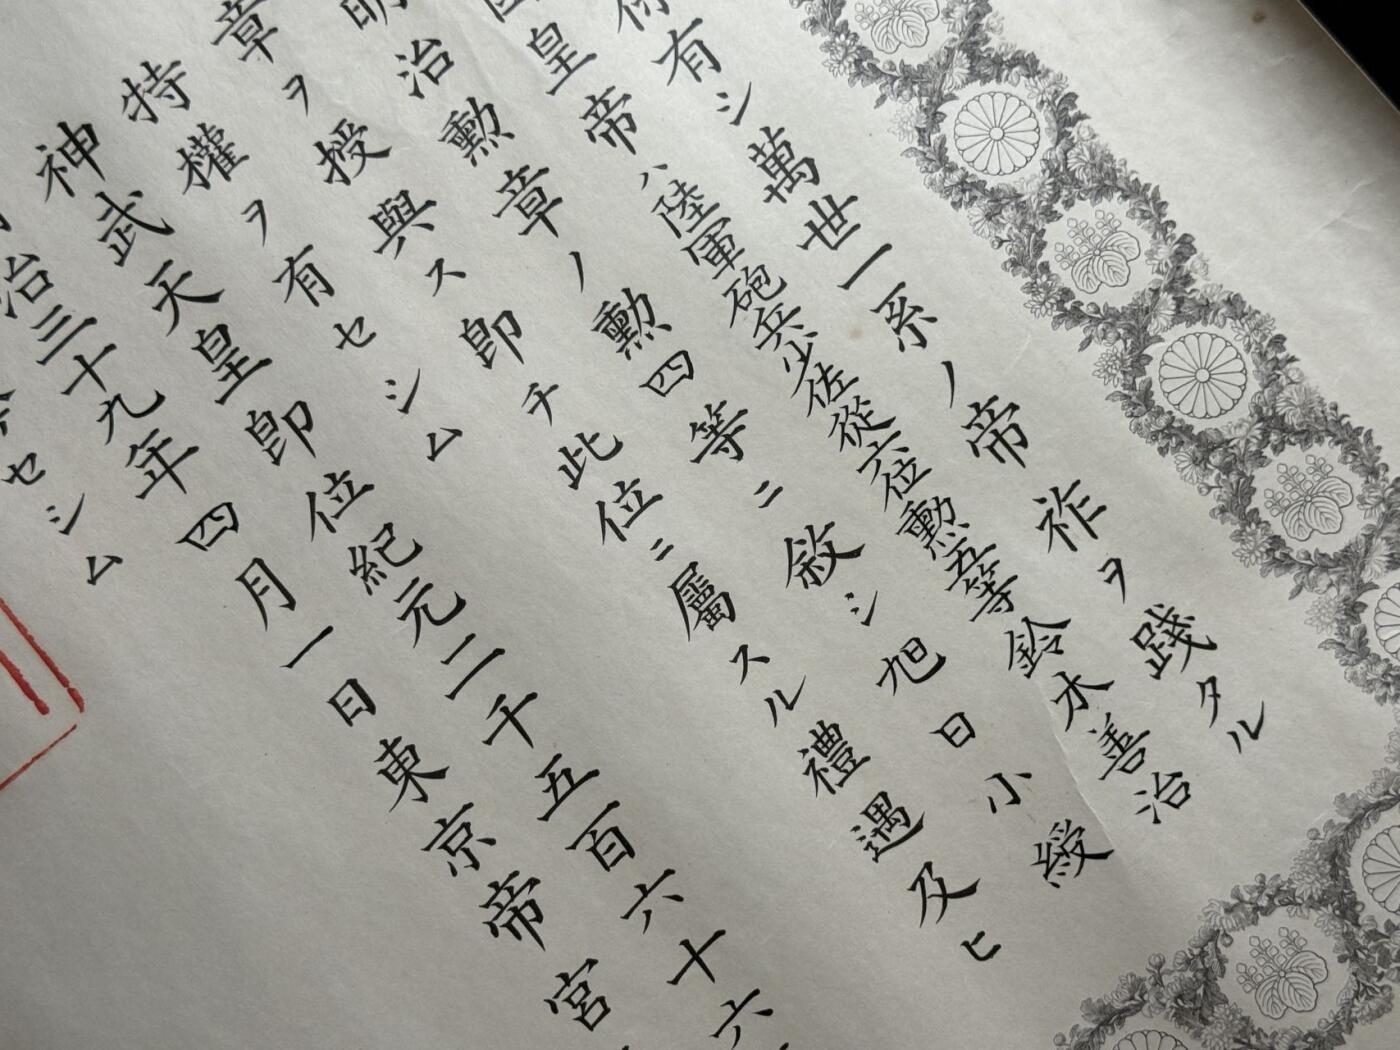 保有シ萬世一系ノ帝祚ヲ踐タル
國皇帝ハ陸軍砲兵少佐從六位勲五等鈴木善治
明治勲章ノ勲四等ニ敘シ旭日小綬
章ヲ授與ス即チ此位ニ屬スル禮遇及ヒ
特權ヲ有セシム
神武天皇即位紀元二千五百六十六
治三十九年四月一日東京帝宮
セシム